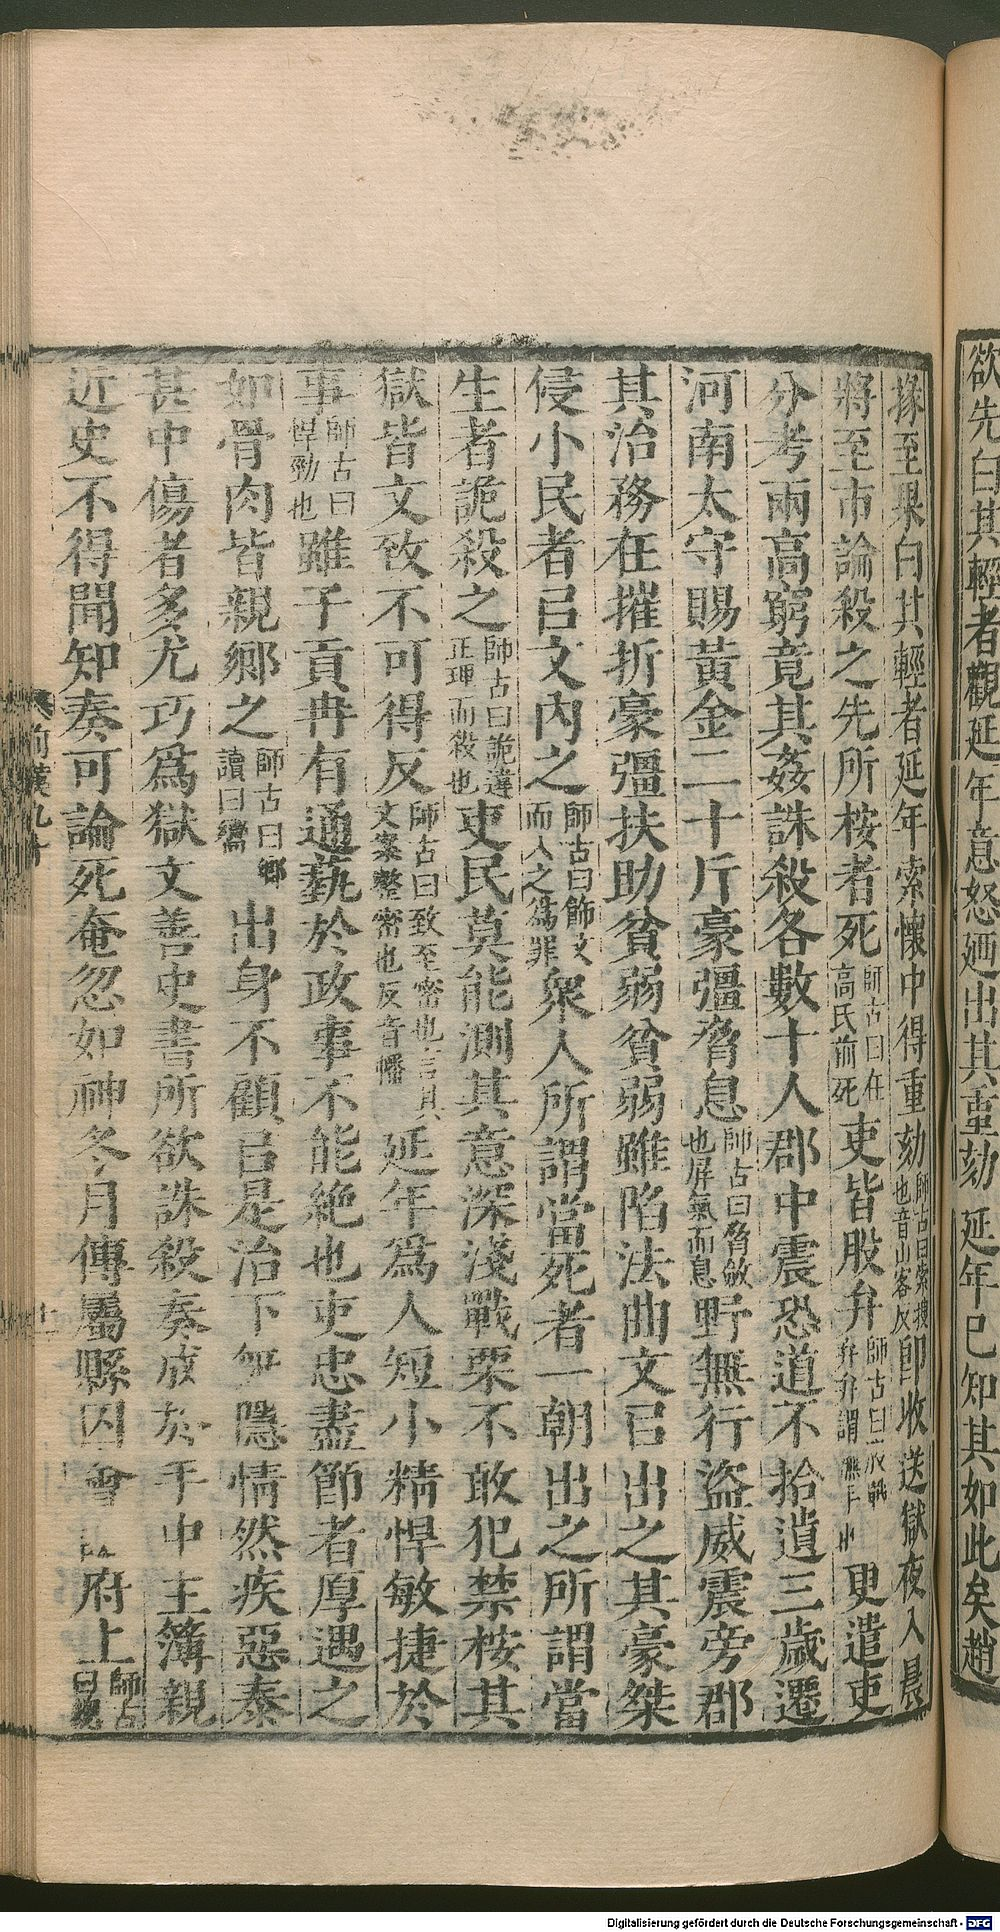 欲先白其輕者觀延年意怒廼出其重劾延年已知其如此矣趙
掾至果白其輕者延年索懷中得重劾師古曰索搜也音山客反即收送獄夜入晨
將至市論殺之先所桉者死師古曰在高氏前死吏皆股弁師古曰股戰弁弁謂更遣吏
分考兩高窮竟其姦誅殺各數十人郡中震恐道不拾遺三歲遷
河南太守賜黃金二十斤豪彊脅息師古曰脅斂也屏氣而息野無行盜威震旁郡
其治務在摧折豪彊扶助貧弱貧弱雖陷法曲文㠯出之其豪桀
侵小民者㠯文內之師古曰飾文而入之爲罪衆人所謂當死者一朝出之所謂當
生者詭殺之師古曰詭違正理而殺也吏民莫能測其意深淺戰栗不敢犯禁桉其
獄皆文致不可得反師古曰致至密也言其文案整密也反音幡延年爲人短小精悍敏捷於
事師古曰悍勁也雖子貢冉有通藝於政事不能絶也吏忠盡節者厚遇之
如骨肉皆親鄉之師古曰鄉讀曰嚮出身不顧㠯是治下無隱情然疾惡泰
甚中傷者多尤巧爲獄文善史書所欲誅殺奏成於手中主簿親
近史不得聞知奏可論死奄忽如神冬月傳屬縣囚會府上師古曰
前漢九十
十一
Digitalisierung gefördert durch die Deutsche Forschungsgemeinschaft - DFG